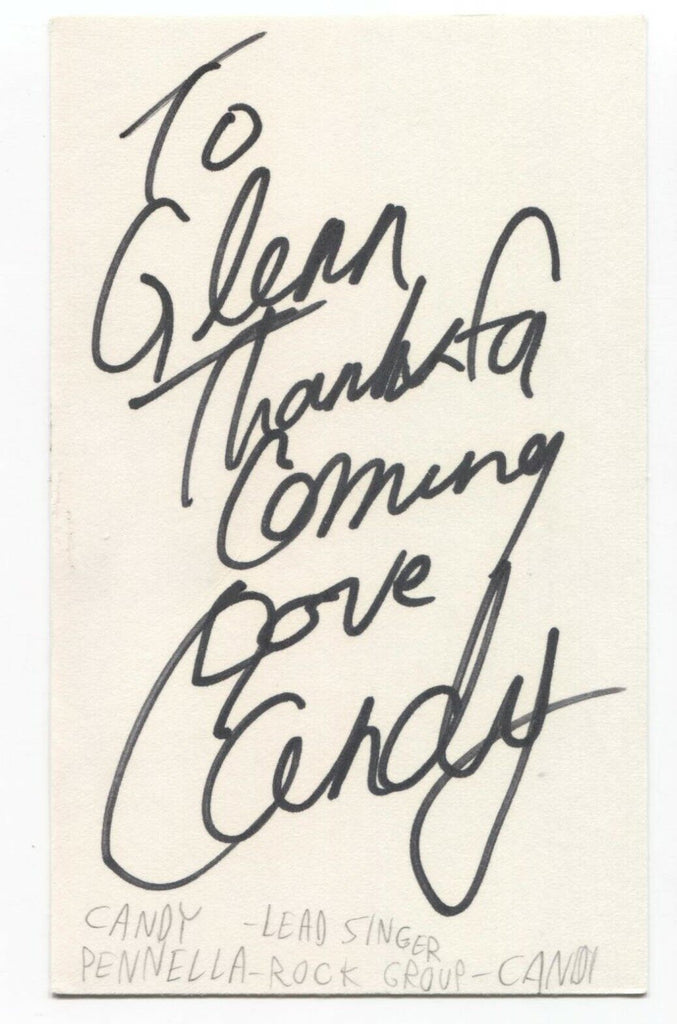 To
Glenn
Thanks fa
Coming
Love
Candy
CANDY -LEAD SINGER
PENNELLA-ROCK GROUP-CANDI